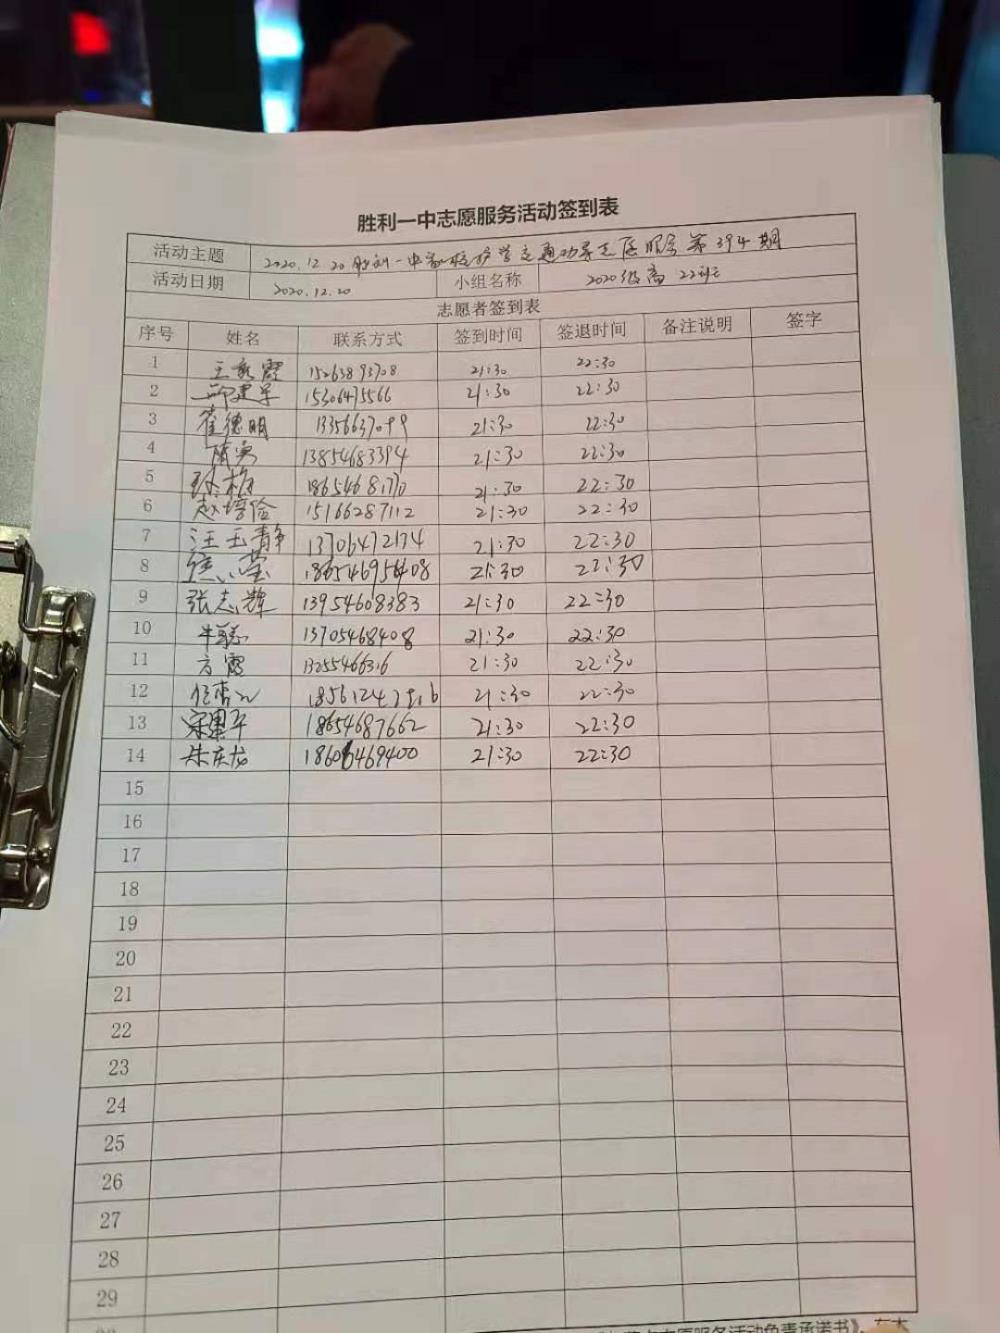 胜利一中志愿服务活动签到表
活动主题 2020.12.20胜利一中家校护学交通劝导志愿服务第394期
活动日期 2020.12.20 小组名称 2020级高22班
志愿者签到表
序号 姓名 联系方式 签到时间 签退时间 备注说明 签字
1 15263893708 21:30 22:30
2 邱建军 15306475566 21:30 22:30
3 崔德明 13356637099 21:30 22:30
4 隋勇 13854683394 21:30 22:30
5 18654681770 21:30 22:30
6 赵培俭 15166287112 21:30 22:30
7 汪玉静 13706472174 21:30 22:30
8 21:30 22:30
9 张志辉 13954608383 21:30 22:30
10 牛聪 13705468408 21:30 22:30
11 方霞 13255466316 21:30 22:30
12 21:30 22:30
13 18654687662 21:30 22:30
14 朱庆龙 18606469400 21:30 22:30
15
16
17
18
19
20
21
22
23
24
25
26
27
28
29
志愿服务活动负责承诺书》